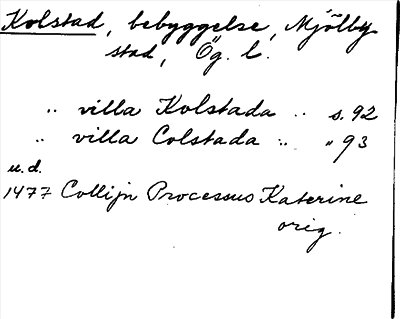 Kolstad, bebyggelse, Mjölby
stad, Ög. l.
.. villa Kolstada .. s. 92
.. villa Colstada .. " 93
u.d.
1477 Collijn Processus Katerine
orig.